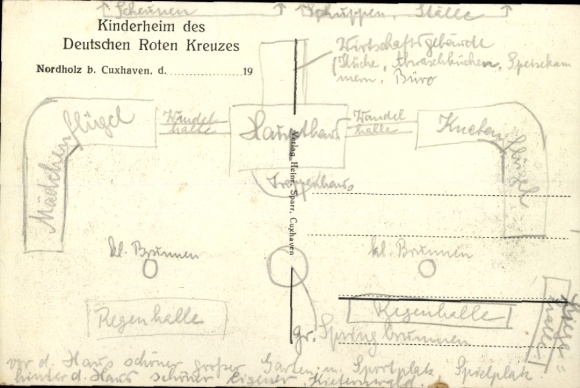 ↑ Scheunen ↑ Schuppen, Ställe ↑
Kinderheim des
Deutschen Roten Kreuzes
Nordholz b. Cuxhaven, d. 19
Wirtschaftsgebäude
(Küche, Abwaschküchen, Speisekam
mern, Büro
Mädchenflügel
Wandel
halle
Haupthaus
Wandel
halle
Knabenflügel
Treppenhaus
Verlag Heinr. Sparr, Cuxhaven
kl. Brunnen
kl. Brunnen
Regenhalle
Regenhalle
gr. Springbrunnen
vor d. Haus schöner großer Garten u. Sportplatz, Spielplatz
hinter d. Haus schöner eigener Kiefernwald